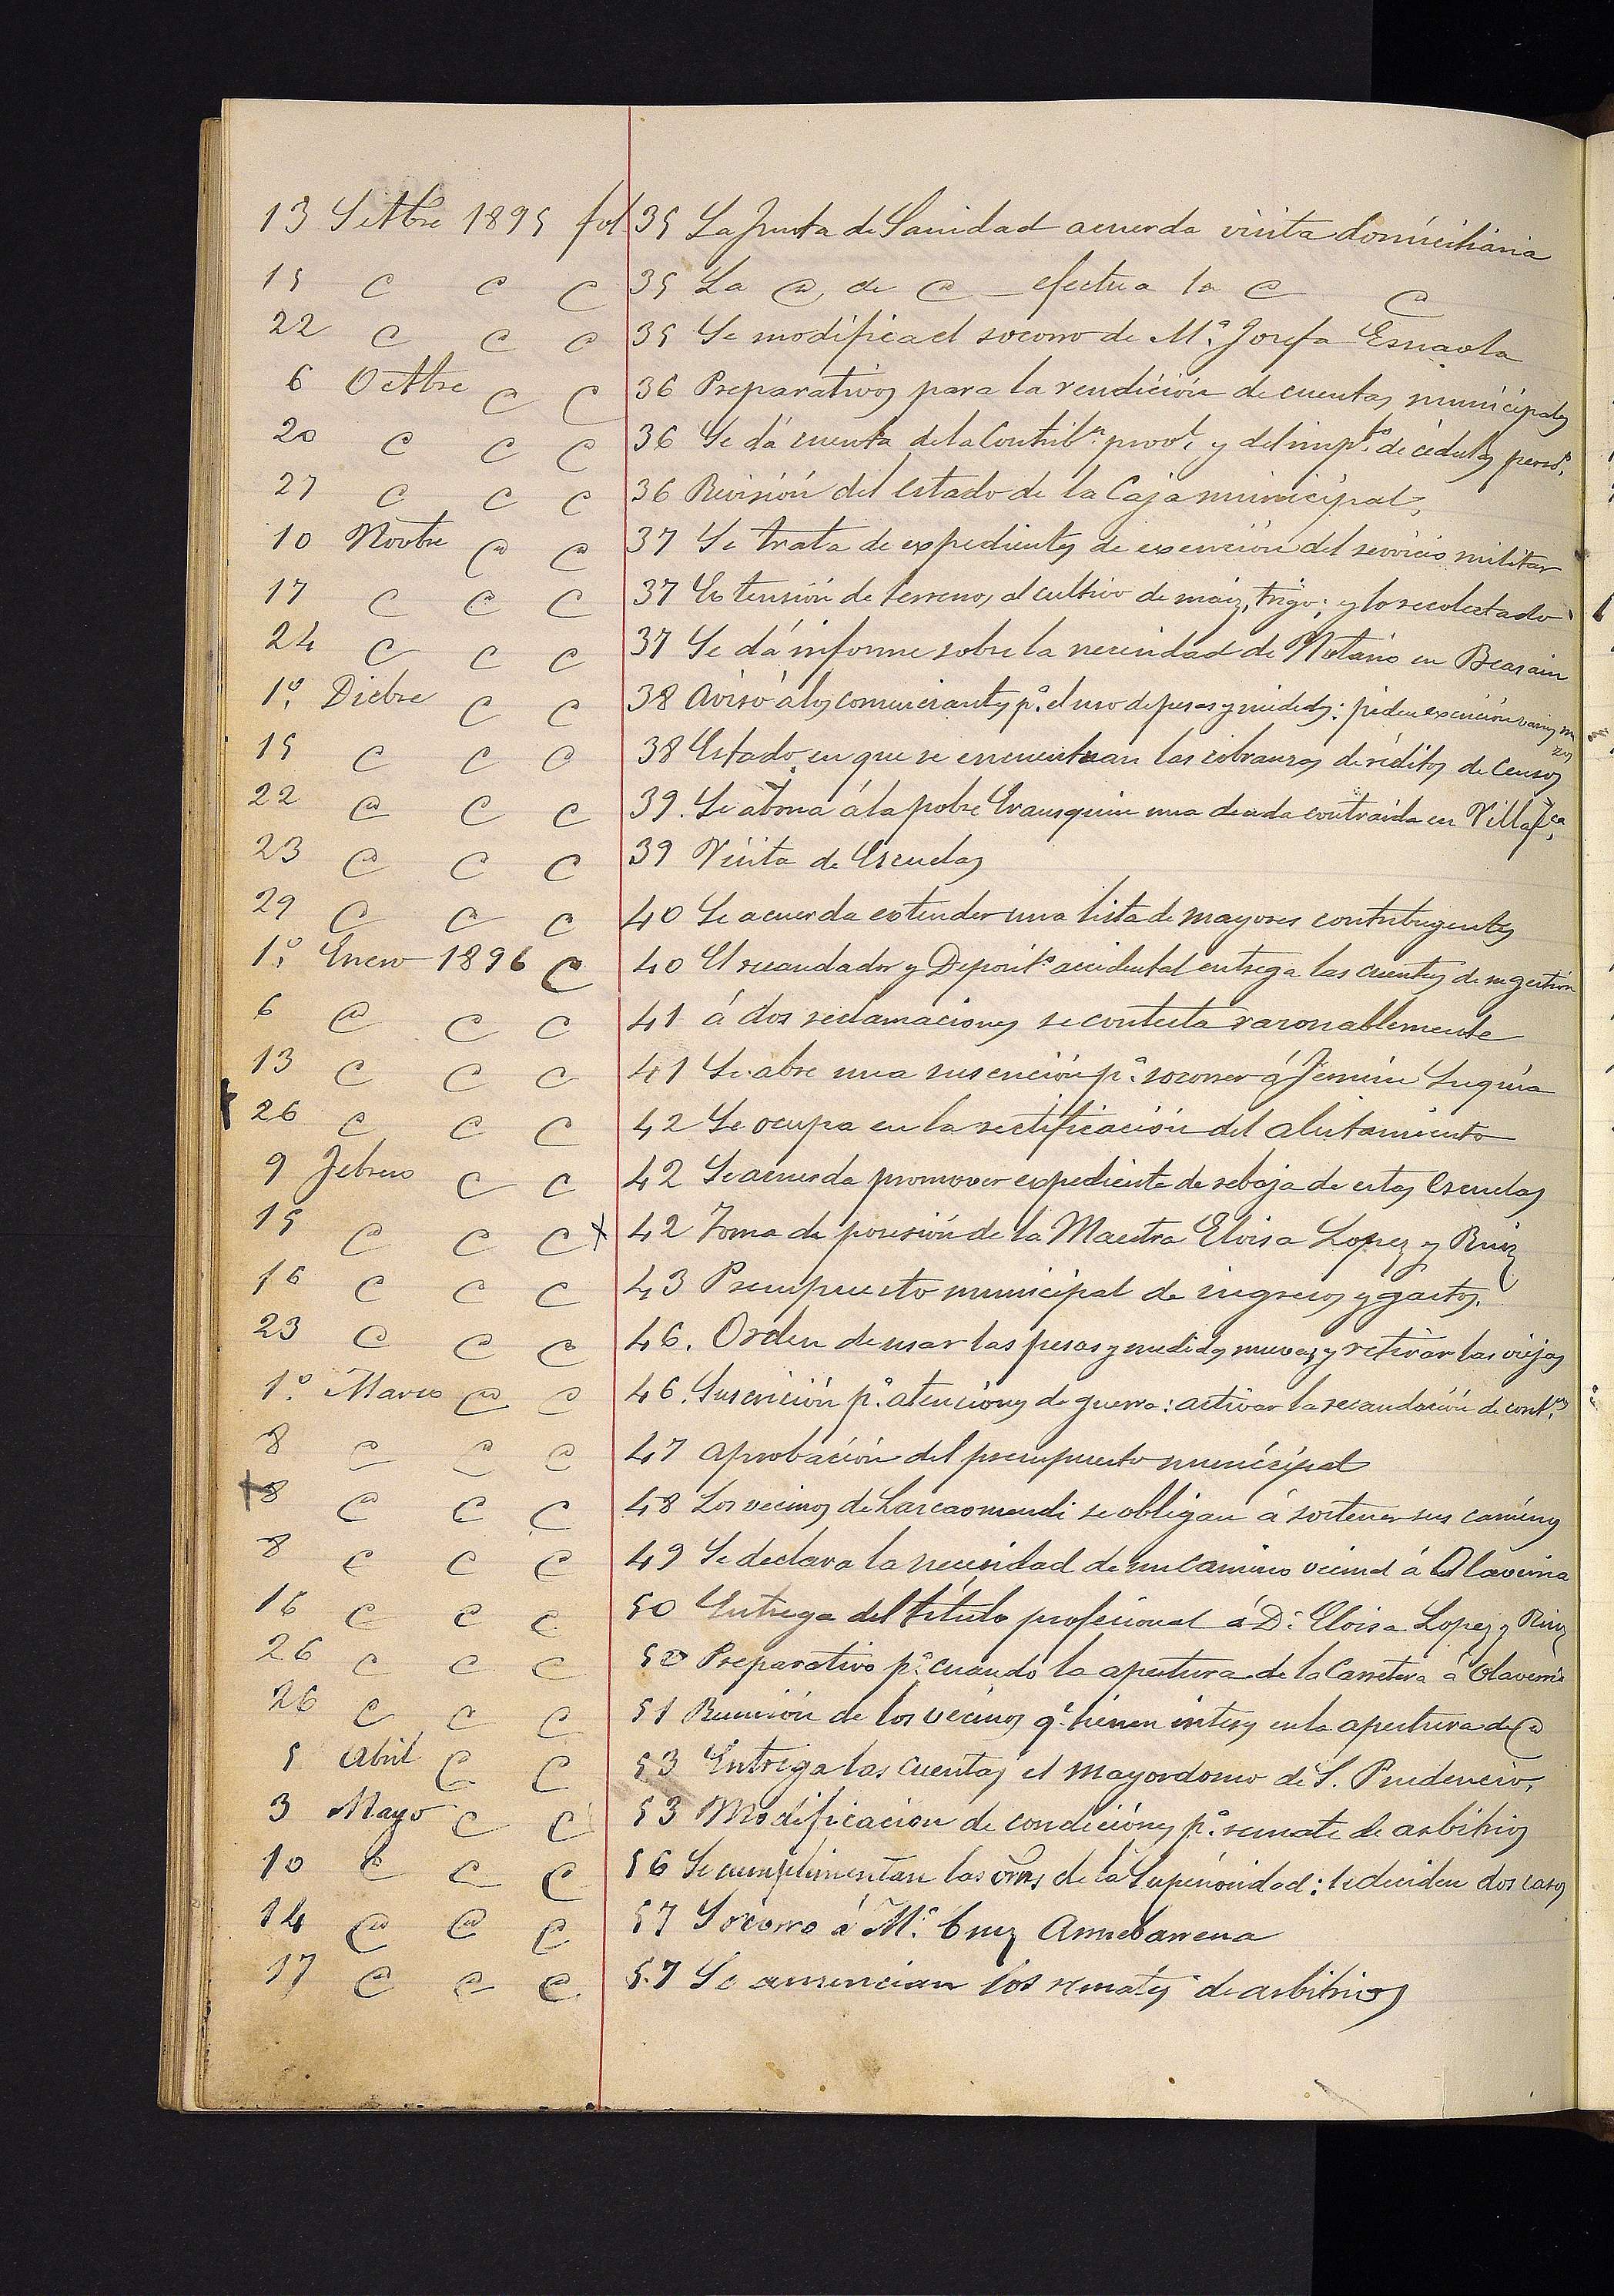 13 Setbre 1895 fol 35 La Junta de Sanidad acuerda visita domiciliaria
15 " " " 35 La " de " efectua la " "
22 " " " 35 Se modifica el socorro de M.ª Josefa Esnaola
6 Octbre " " 36 Preparativos para la rendición de cuentas municipales
20 " " " 36 Se dá cuenta de la Contrib.n provl. y del imp.to de cédulas persos.
27 " " " 36 Revisión del estado de la Caja municipal.
10 Novbre " " 37 Se trata de expedientes de exención del servicio militar
17 " " " 37 Extensión de terreno, al cultivo de maiz, trigo; y lo recolectado
24 " " " 37 Se dá informe sobre la necesidad de Notario en Beasain
1.º Dicbre " " 38 Aviso á los comerciantes p.ª el uso de pesas y medidas: piden exención varios mozos
15 " " " 38 Estado en que se encuentran las cobranzas de réditos de Censos
22 " " " 39. Se abona á la pobre Irausquin una deuda contraida en Villafca.
23 " " " 39 Visita de Escuelas
29 " " " 40 Se acuerda extender una lista de mayores contribuyentes
1.º Enero 1896 " 40 El recaudador y Deposit.º accidental entrega las cuentas de su gestión
6 " " " 41 á dos reclamaciones se contesta razonablemente
13 " " " 41 Se abre una suscrición p.ª socorrer á Fermin Inguia
26 " " " 42 Se ocupa en la rectificación del alistamiento
9 Febrero " " 42 Se acuerda promover expediente de rebaja de estas Escuelas
15 " " " x 42 Toma de posesión de la Maestra Eloisa Lopez y Ruiz
16 " " " 43 Presupuesto municipal de ingresos y gastos.
23 " " " 46. Orden de usar las pesas y medidas nuevas y retirar las viejas
1.º Marzo " " 46. Suscrición p.ª atenciones de guerra: activar la recaudación de cont.nes
8 " " " 47 aprobación del presupuesto municipal
8 " " " 48 Los vecinos de Larcaomendi se obligan á sostener sus caminos
8 " " " 49 Se declara la necesidad de un camino vecinal á Olaverria
16 " " " 50 Entrega del título profecional á D.ª Eloisa Lopez y Ruiz
26 " " " 50 Preparativo p.ª cuando la apertura de la Carretera á Olaverria
26 " " " 51 Reunión de los vecinos q.e tienen interes en la apertura de "
5 Abril " " 53 Entrega las cuentas el Mayordomo de S. Prudencio.
3 Mayo " " 53 Modificacion de condiciones p.ª remate de arbitrios
10 " " " 56 Se cumplimentan las orns de la Superioridad: se deciden dos casos
14 " " " 57 Socorro á M.ª Cruz Arruebarrena
17 " " " 57 Se anuncian los remates de arbitrios